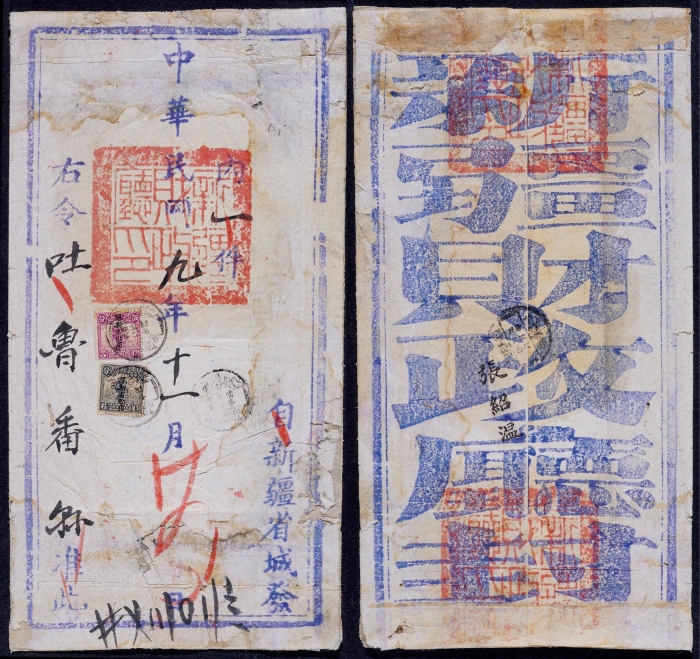 自新疆省城發
内一件
中華民國九年十一月日
右令吐魯番縣准此
新疆財政廳印
新疆財政廳
張紹温